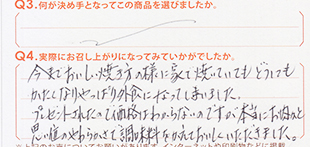 Q3.何が決め手となってこの商品を選びましたか。
Q4.実際にお召し上がりになってみていかがでしたか。
今までおいしい焼き方の様に家で焼いていてもどうしても
かたくなりやっぱり外食になってしまいました。
プレゼントされたので価格はわからないのですが本当にお肉かと
思い位のやわらかさで調味料をかえておいしくいただきました。